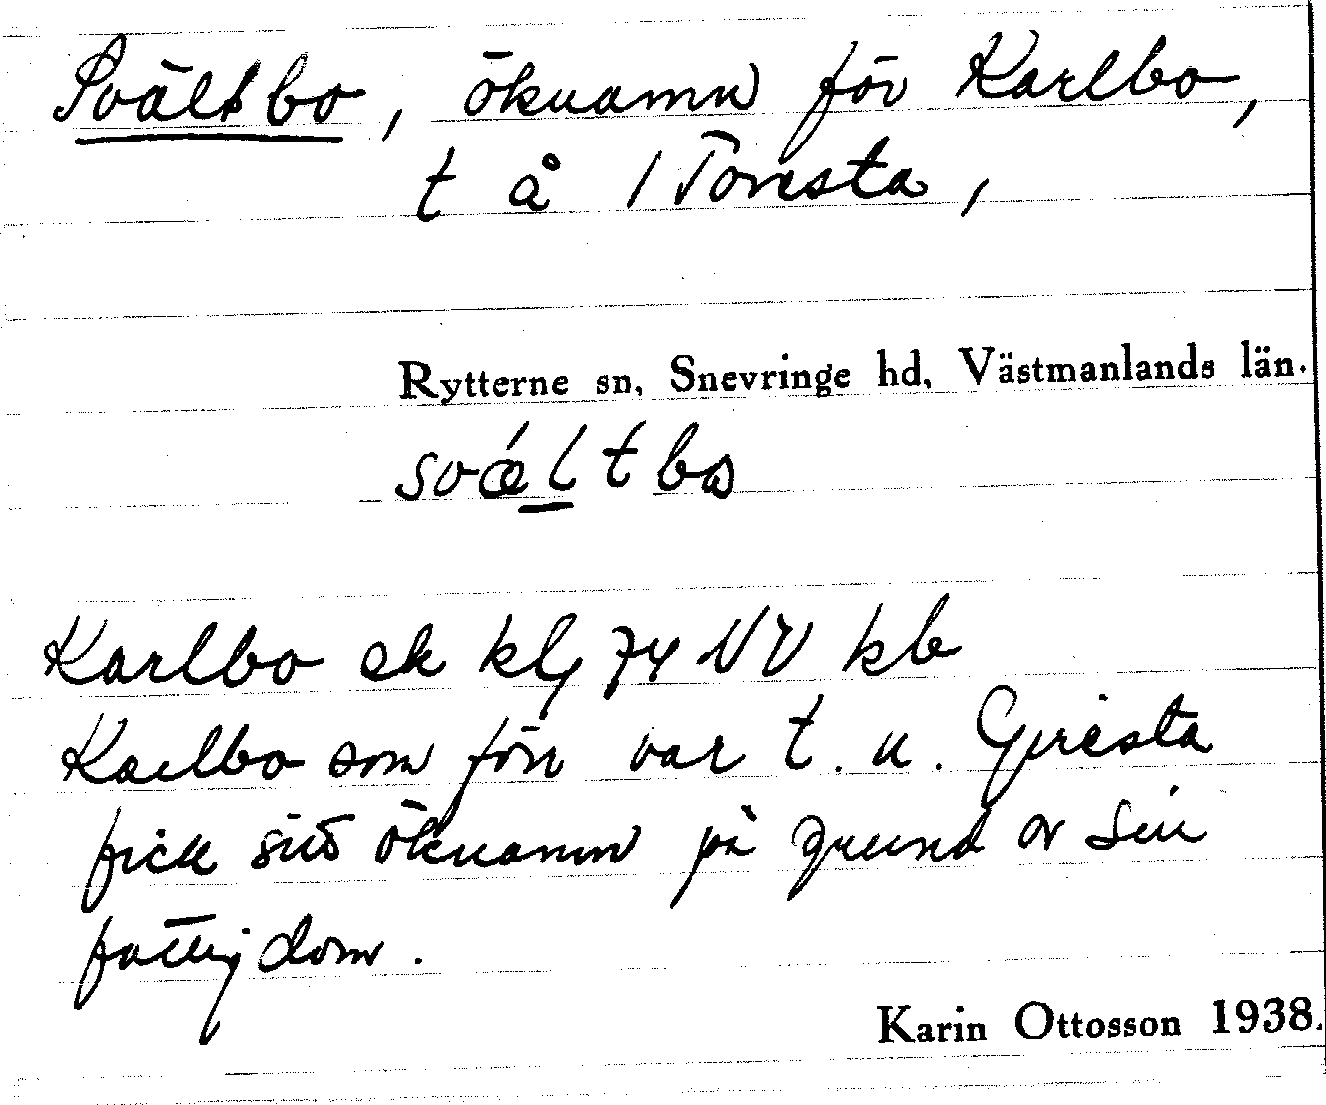 Svältbo, öknamn för Karlbo,
t å 1 Toresta,
Rytterne sn, Snevringe hd, Västmanlands län.
svǽltbo
Karlbo ek klj 74 NV kb
Karlbo som förr var t. u. Greista
fick sitt öknamn på grund av sin
fattigdom.
Karin Ottosson 1938.